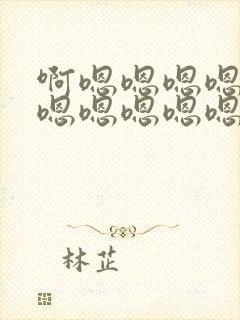 啊嗯嗯嗯嗯
嗯嗯嗯嗯嗯
林芷